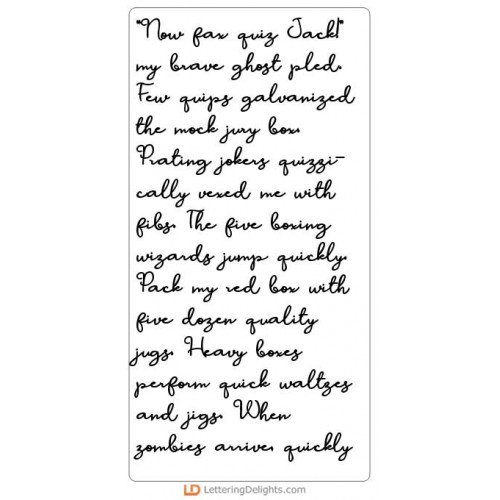 "Now fax quiz Jack!"
my brave ghost pled.
Few quips galvanized
the mock jury box.
Prating jokers quizzi-
cally vexed me with
fibs. The five boxing
wizards jump quickly.
Pack my red box with
five dozen quality
jugs. Heavy boxes
perform quick waltzes
and jigs. When
zombies arrive, quickly
LD LetteringDelights.com